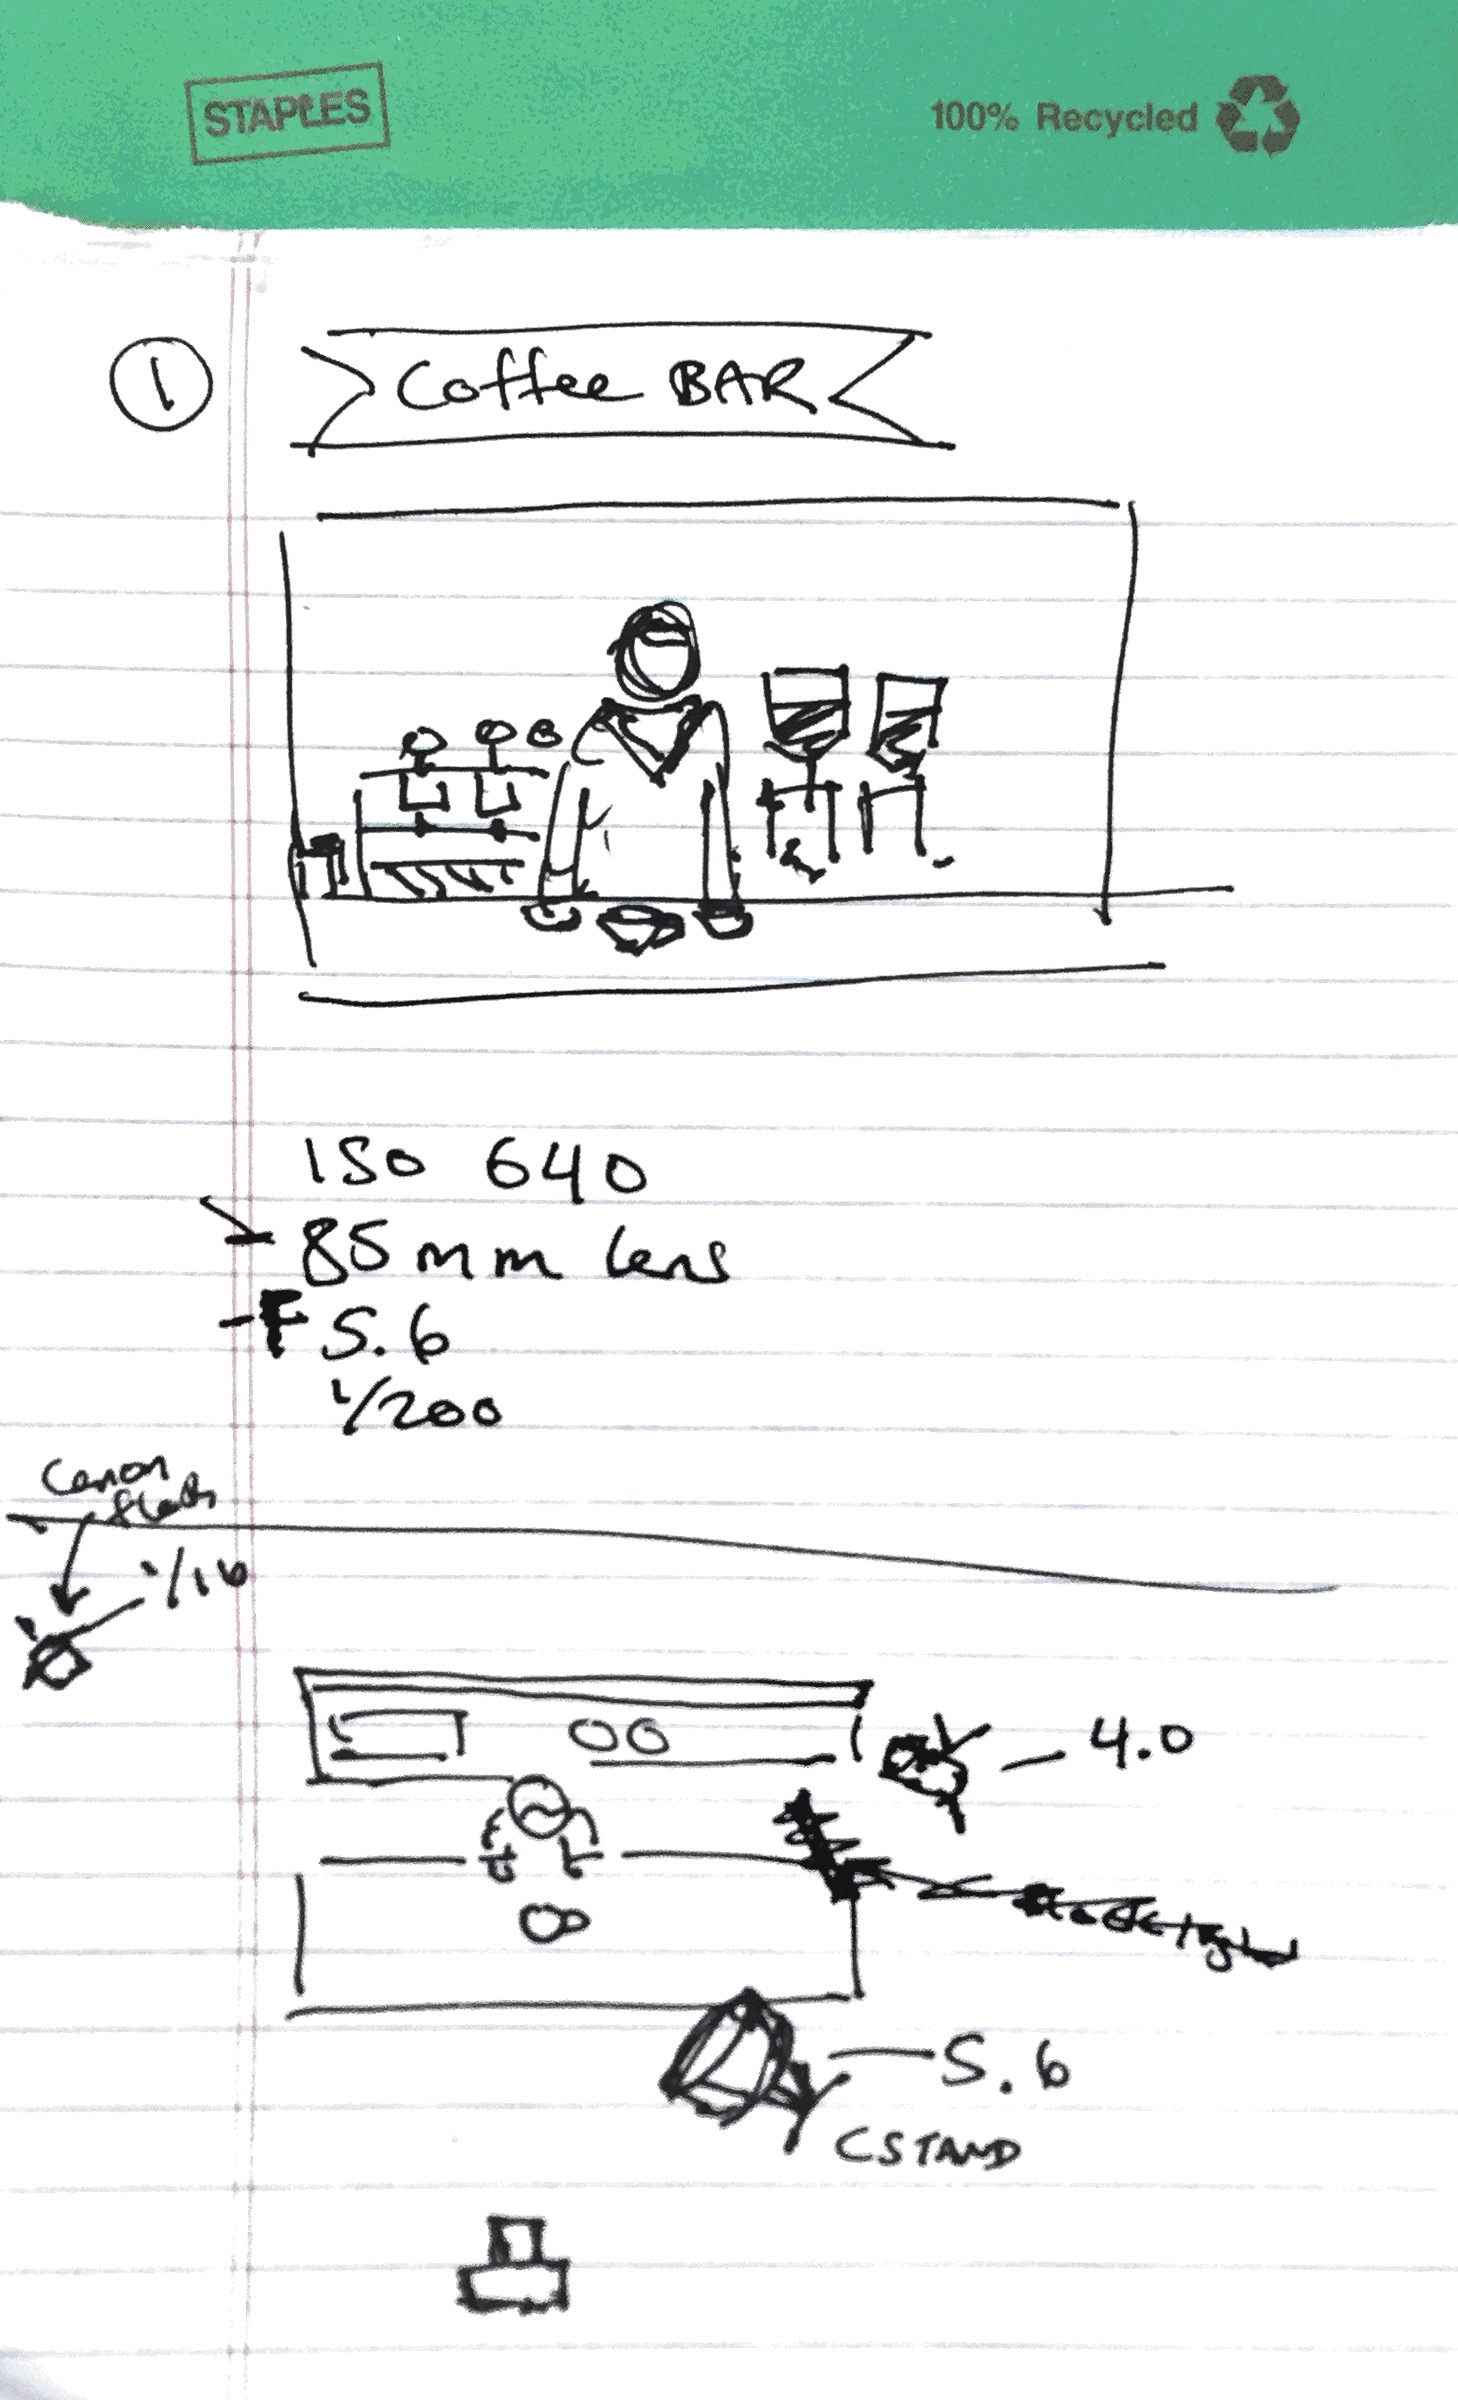 STAPLES
100% Recycled
1
Coffee BAR
ISO 640
85mm lens
F 5.6
1/200
Canon
flash
1/16
4.0
5.6
CSTAND